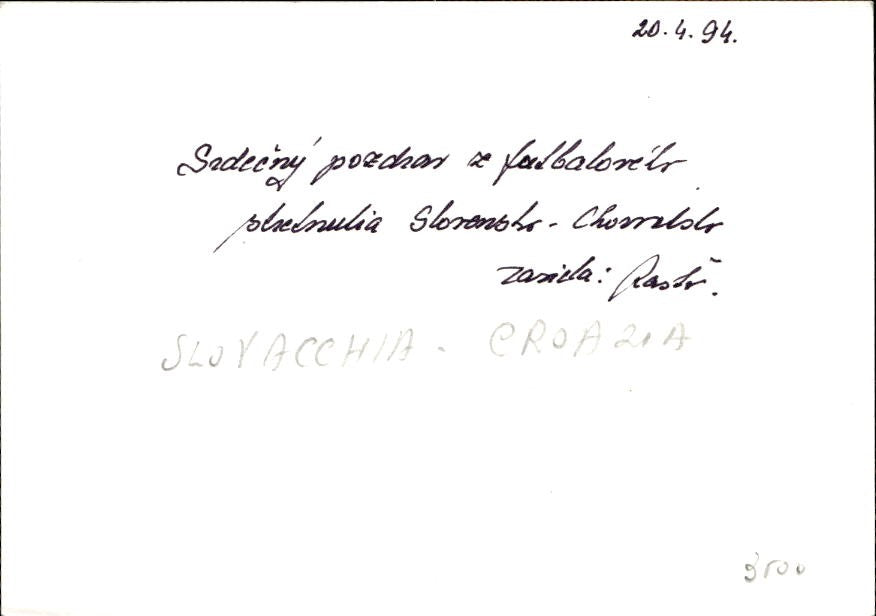 20.4.94.
Srdečný pozdrav z futbalového
stretnutia Slovensko - Chorvatsko
zasiela: Rasťo.
SLOVACCHIA - CROAZIA
3500